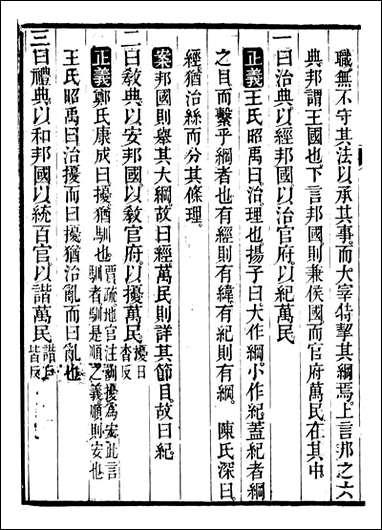 職無不守其法以承其事而大宰特挈其綱焉上言邦之六
典邦謂王國也下言邦國則兼侯國而官府萬民在其中
一曰治典以經邦國以治官府以紀萬民
正義王氏昭禹曰治理也揚子曰大作綱小作紀蓋紀者綱
之目而繫乎綱者也有經則有緯有紀則有綱 陳氏深曰
經猶治絲而分其條理
案邦國則舉其大綱故曰經萬民則詳其節目故曰紀
二曰敎典以安邦國以敎官府以擾萬民擾日杳反
正義鄭氏康成曰擾猶馴也賈疏地官注訓擾為安此言馴者馴是順之義順則安也
王氏昭禹曰治擾而曰擾猶治亂而曰亂也
三曰禮典以和邦國以統百官以諧萬民諧戶皆反